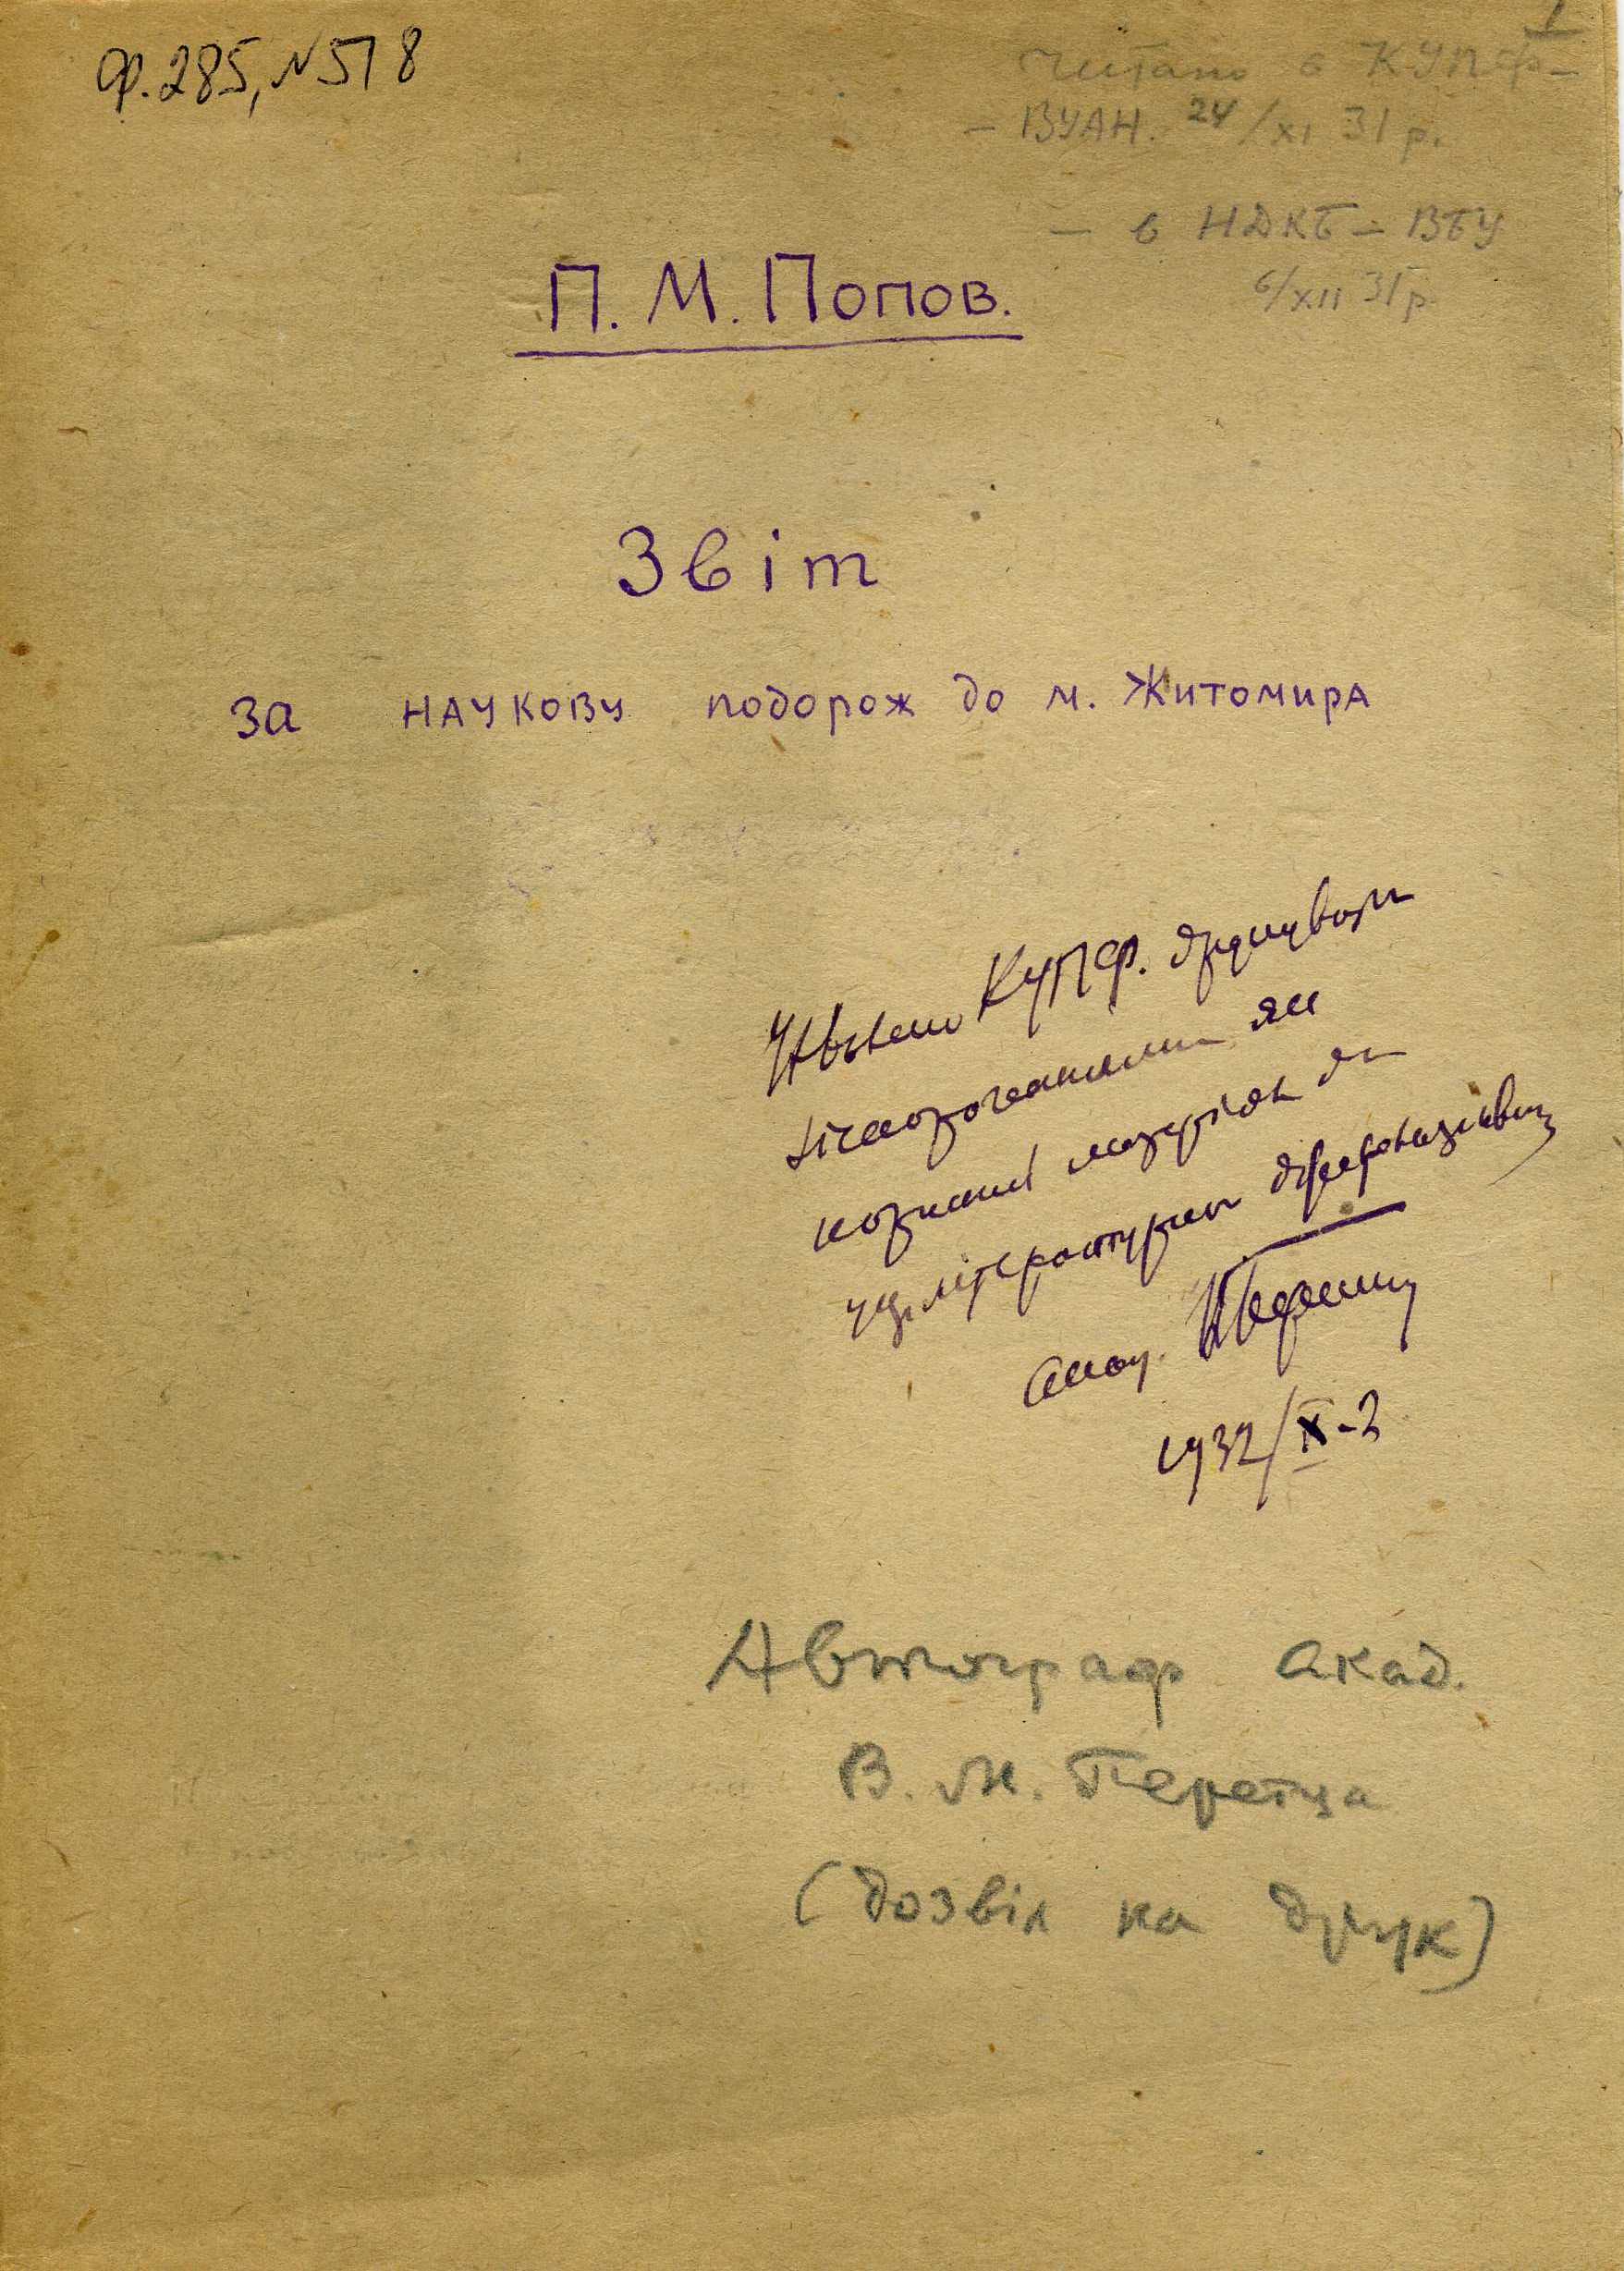 1
Ф. 285, № 518
Читано в КУПФ–
– ВУАН. 24/XI 31 р.
– в НДКБ – ВБУ
6/XII 31 р.
П. М. Попов.
Звіт
за наукову подорож до м. Житомира
КУПФ. друкувати
як
матеріал
акад. В Перетц
1932/IX-2
Автограф акад.
В. М. Перетца
(дозвіл на друк)